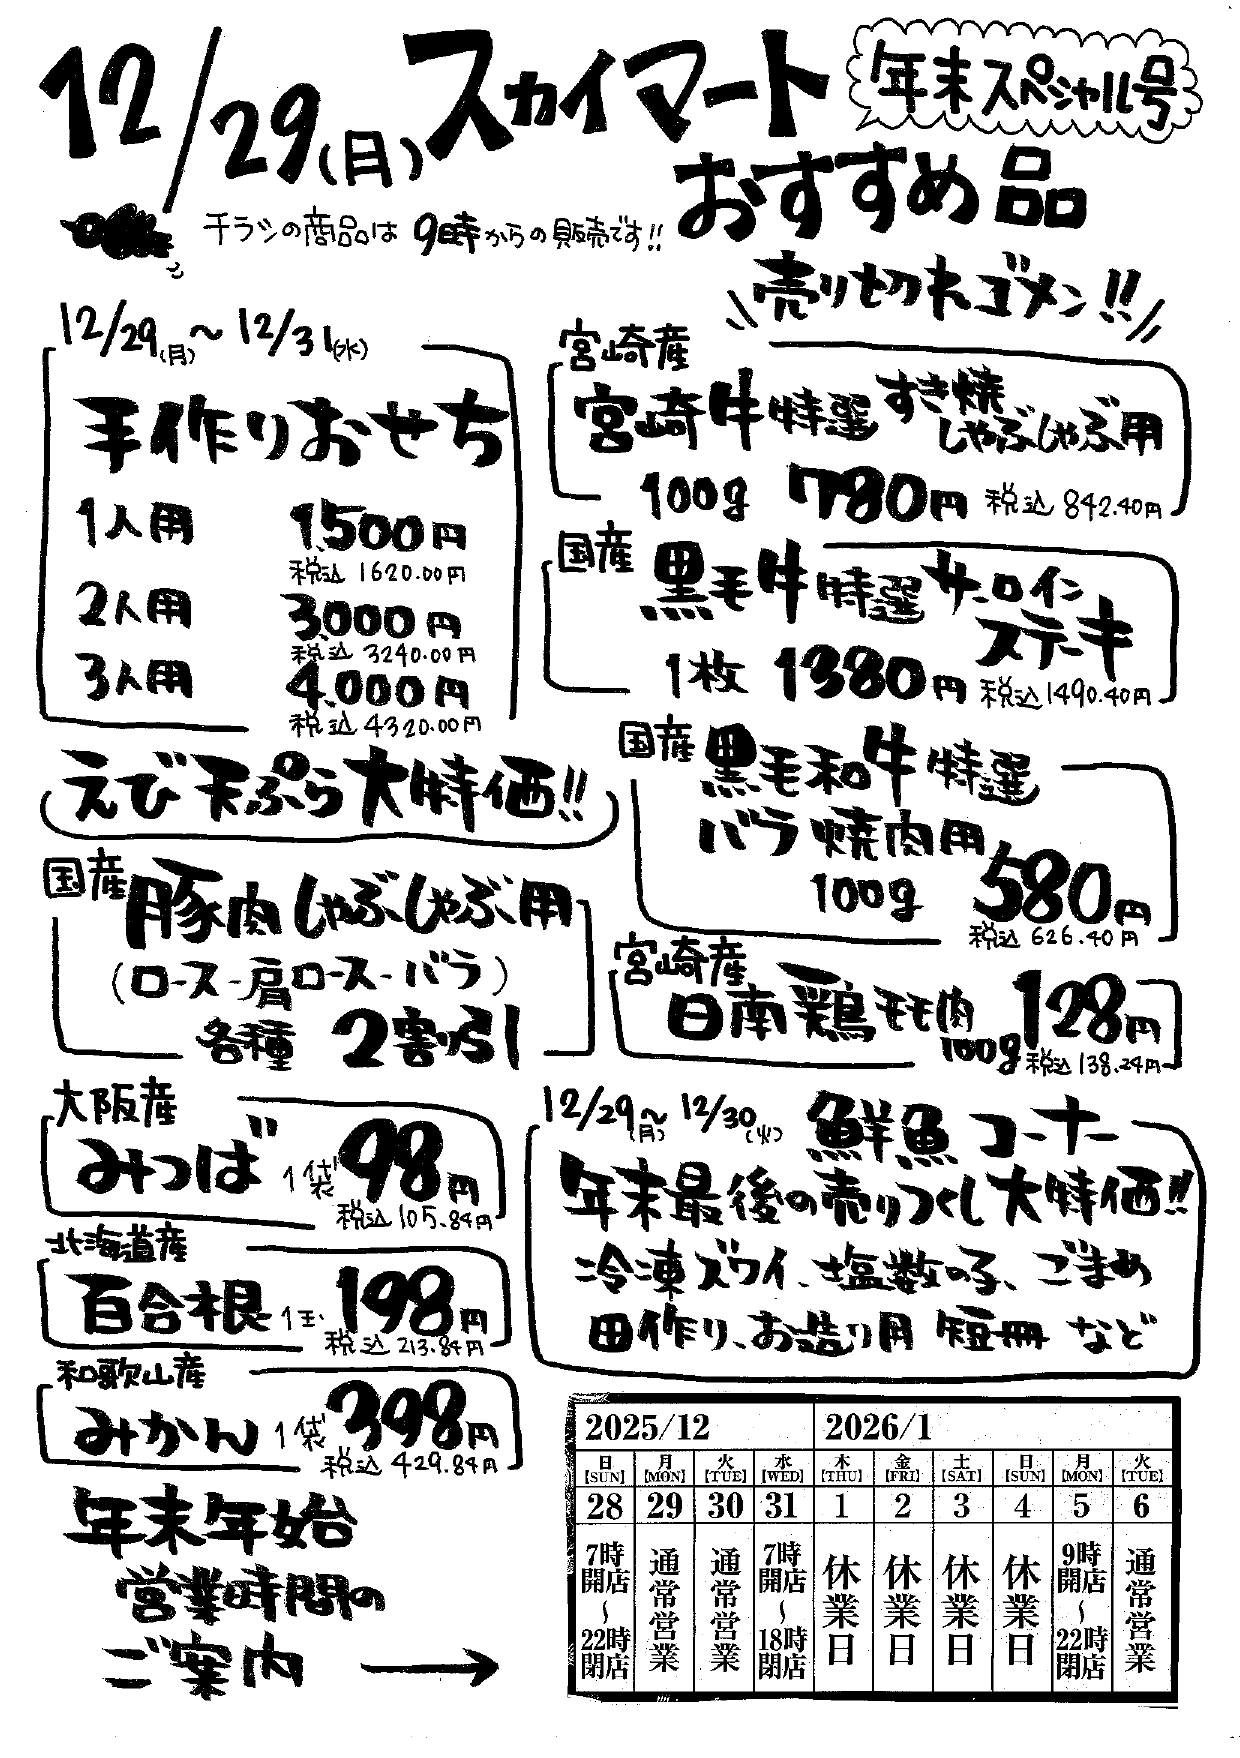 12/29(月) スカイマート
年末スペシャル号
おすすめ品
チラシの商品は 9時からの販売です!!
売り切れゴメン!!
12/29(月)～12/31(水)
手作りおせち
1人用 1,500円
税込 1620.00円
2人用 3,000円
税込 3240.00円
3人用 4,000円
税込 4320.00円
えび天ぷら大特価!!
国産
豚肉しゃぶしゃぶ用
(ロース-肩ロース-バラ)
各種 2割引
大阪産
みつば 1袋 98円
税込 105.84円
北海道産
百合根 1玉 198円
税込 213.84円
和歌山産
みかん 1袋 398円
税込 429.84円
宮崎産
宮崎牛特選 すき焼
しゃぶしゃぶ用
100g 780円 税込 842.40円
国産
黒毛牛特選 サーロイン
ステーキ
1枚 1380円 税込 1490.40円
国産
黒毛和牛特選
バラ焼肉用
100g 580円
税込 626.40円
宮崎産
日南鶏モモ肉
100g 128円
税込 138.24円
12/29(月)～12/30(火) 鮮魚コーナー
年末最後の売りつくし大特価!!
冷凍ズワイ、塩数の子、ごまめ
田作り、お造り用 短冊 など
年末年始
営業時間の
ご案内 →
2025/12 2026/1
日 月 火 水 木 金 土 日 月 火
[SUN] [MON] [TUE] [WED] [THU] [FRI] [SAT] [SUN] [MON] [TUE]
28 29 30 31 1 2 3 4 5 6
7時開店～22時閉店 通常営業 通常営業 7時開店～18時閉店 休業日 休業日 休業日 休業日 9時開店～22時閉店 通常営業